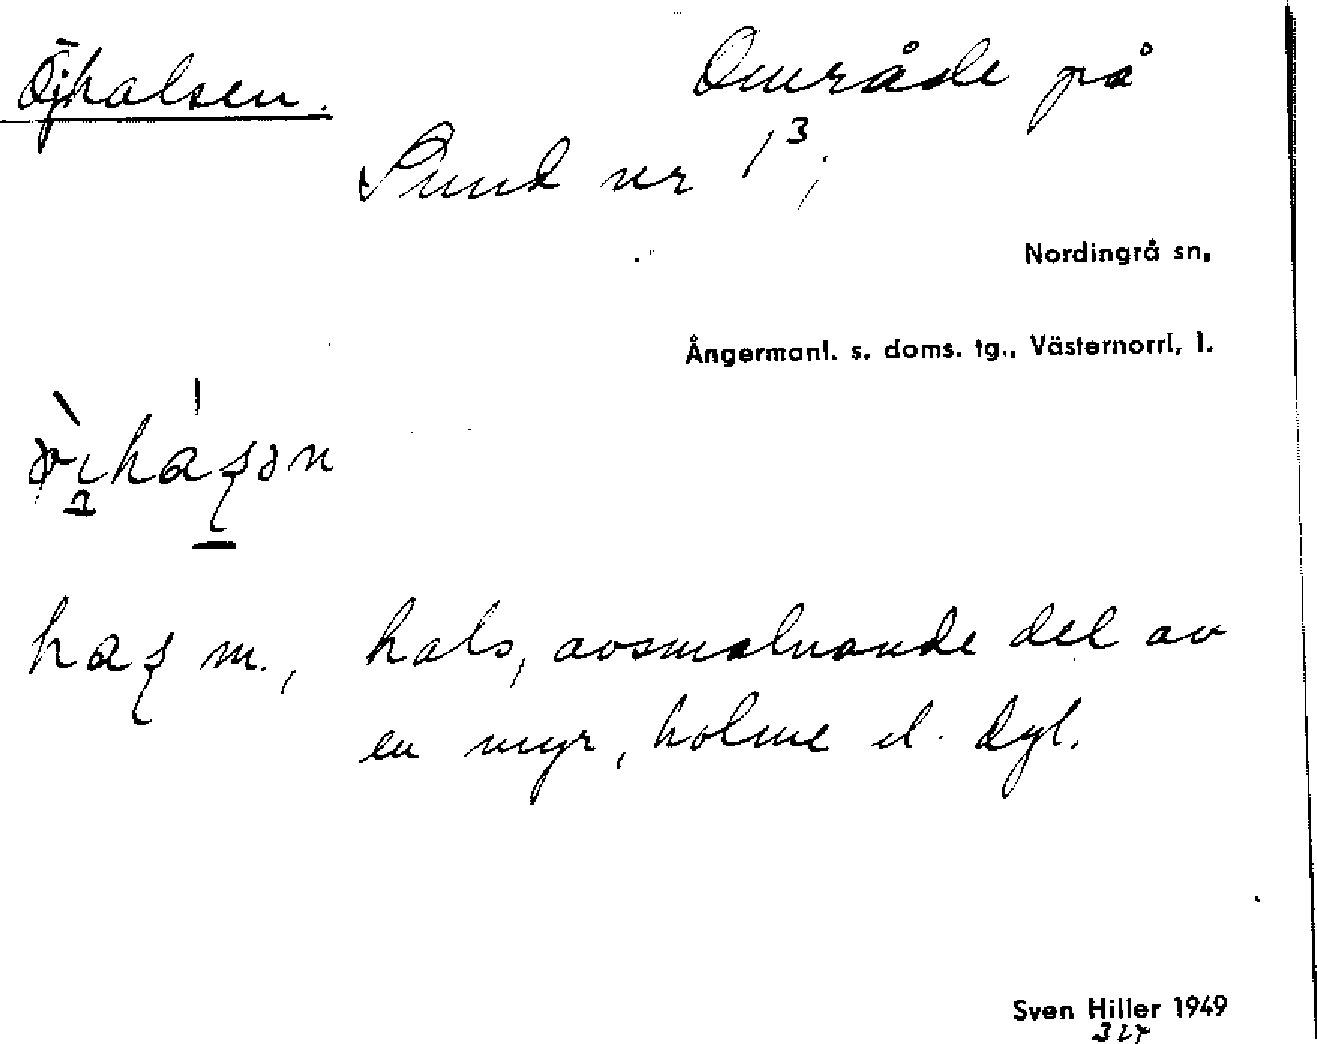 Öjhalsen. Område på
Sund nr 1³;
Nordingrå sn,
Ångermanl. s. doms. tg., Västernorrl, l.
m., hals, avsmalnande del av
en myr, holme el. dyl.
Sven Hiller 1949